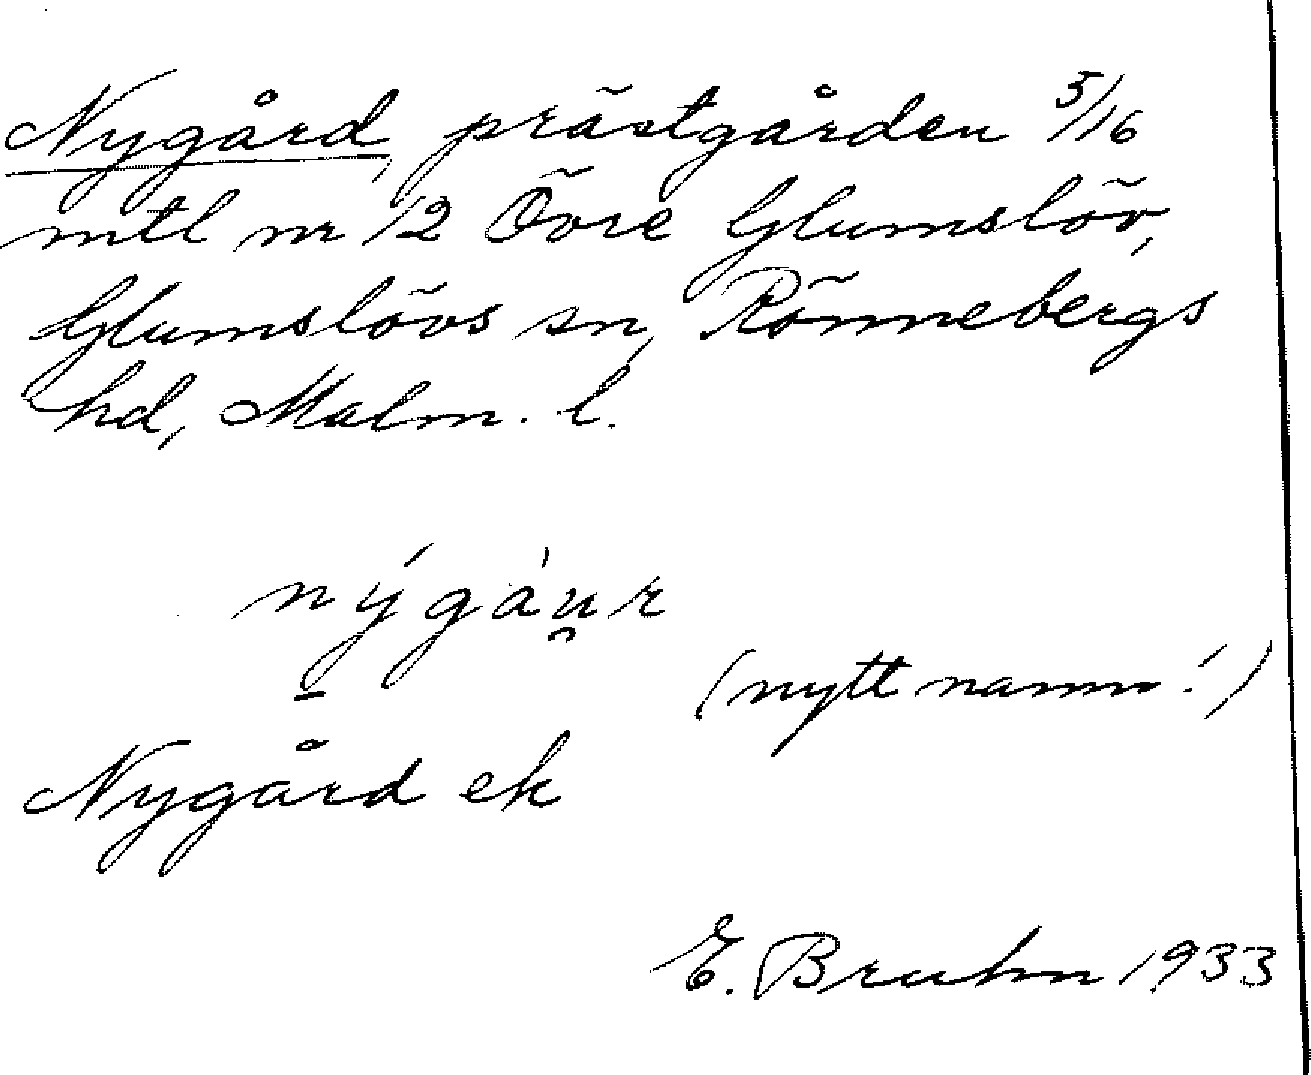 Nygård, prästgården 5/16
mtl nr 12 Övre Glumslöv,
Glumslövs sn, Rönnebergs
hd, Malm. l.
nýgáu̯r
(nytt namn!)
Nygård ek
E. Bruhn 1933